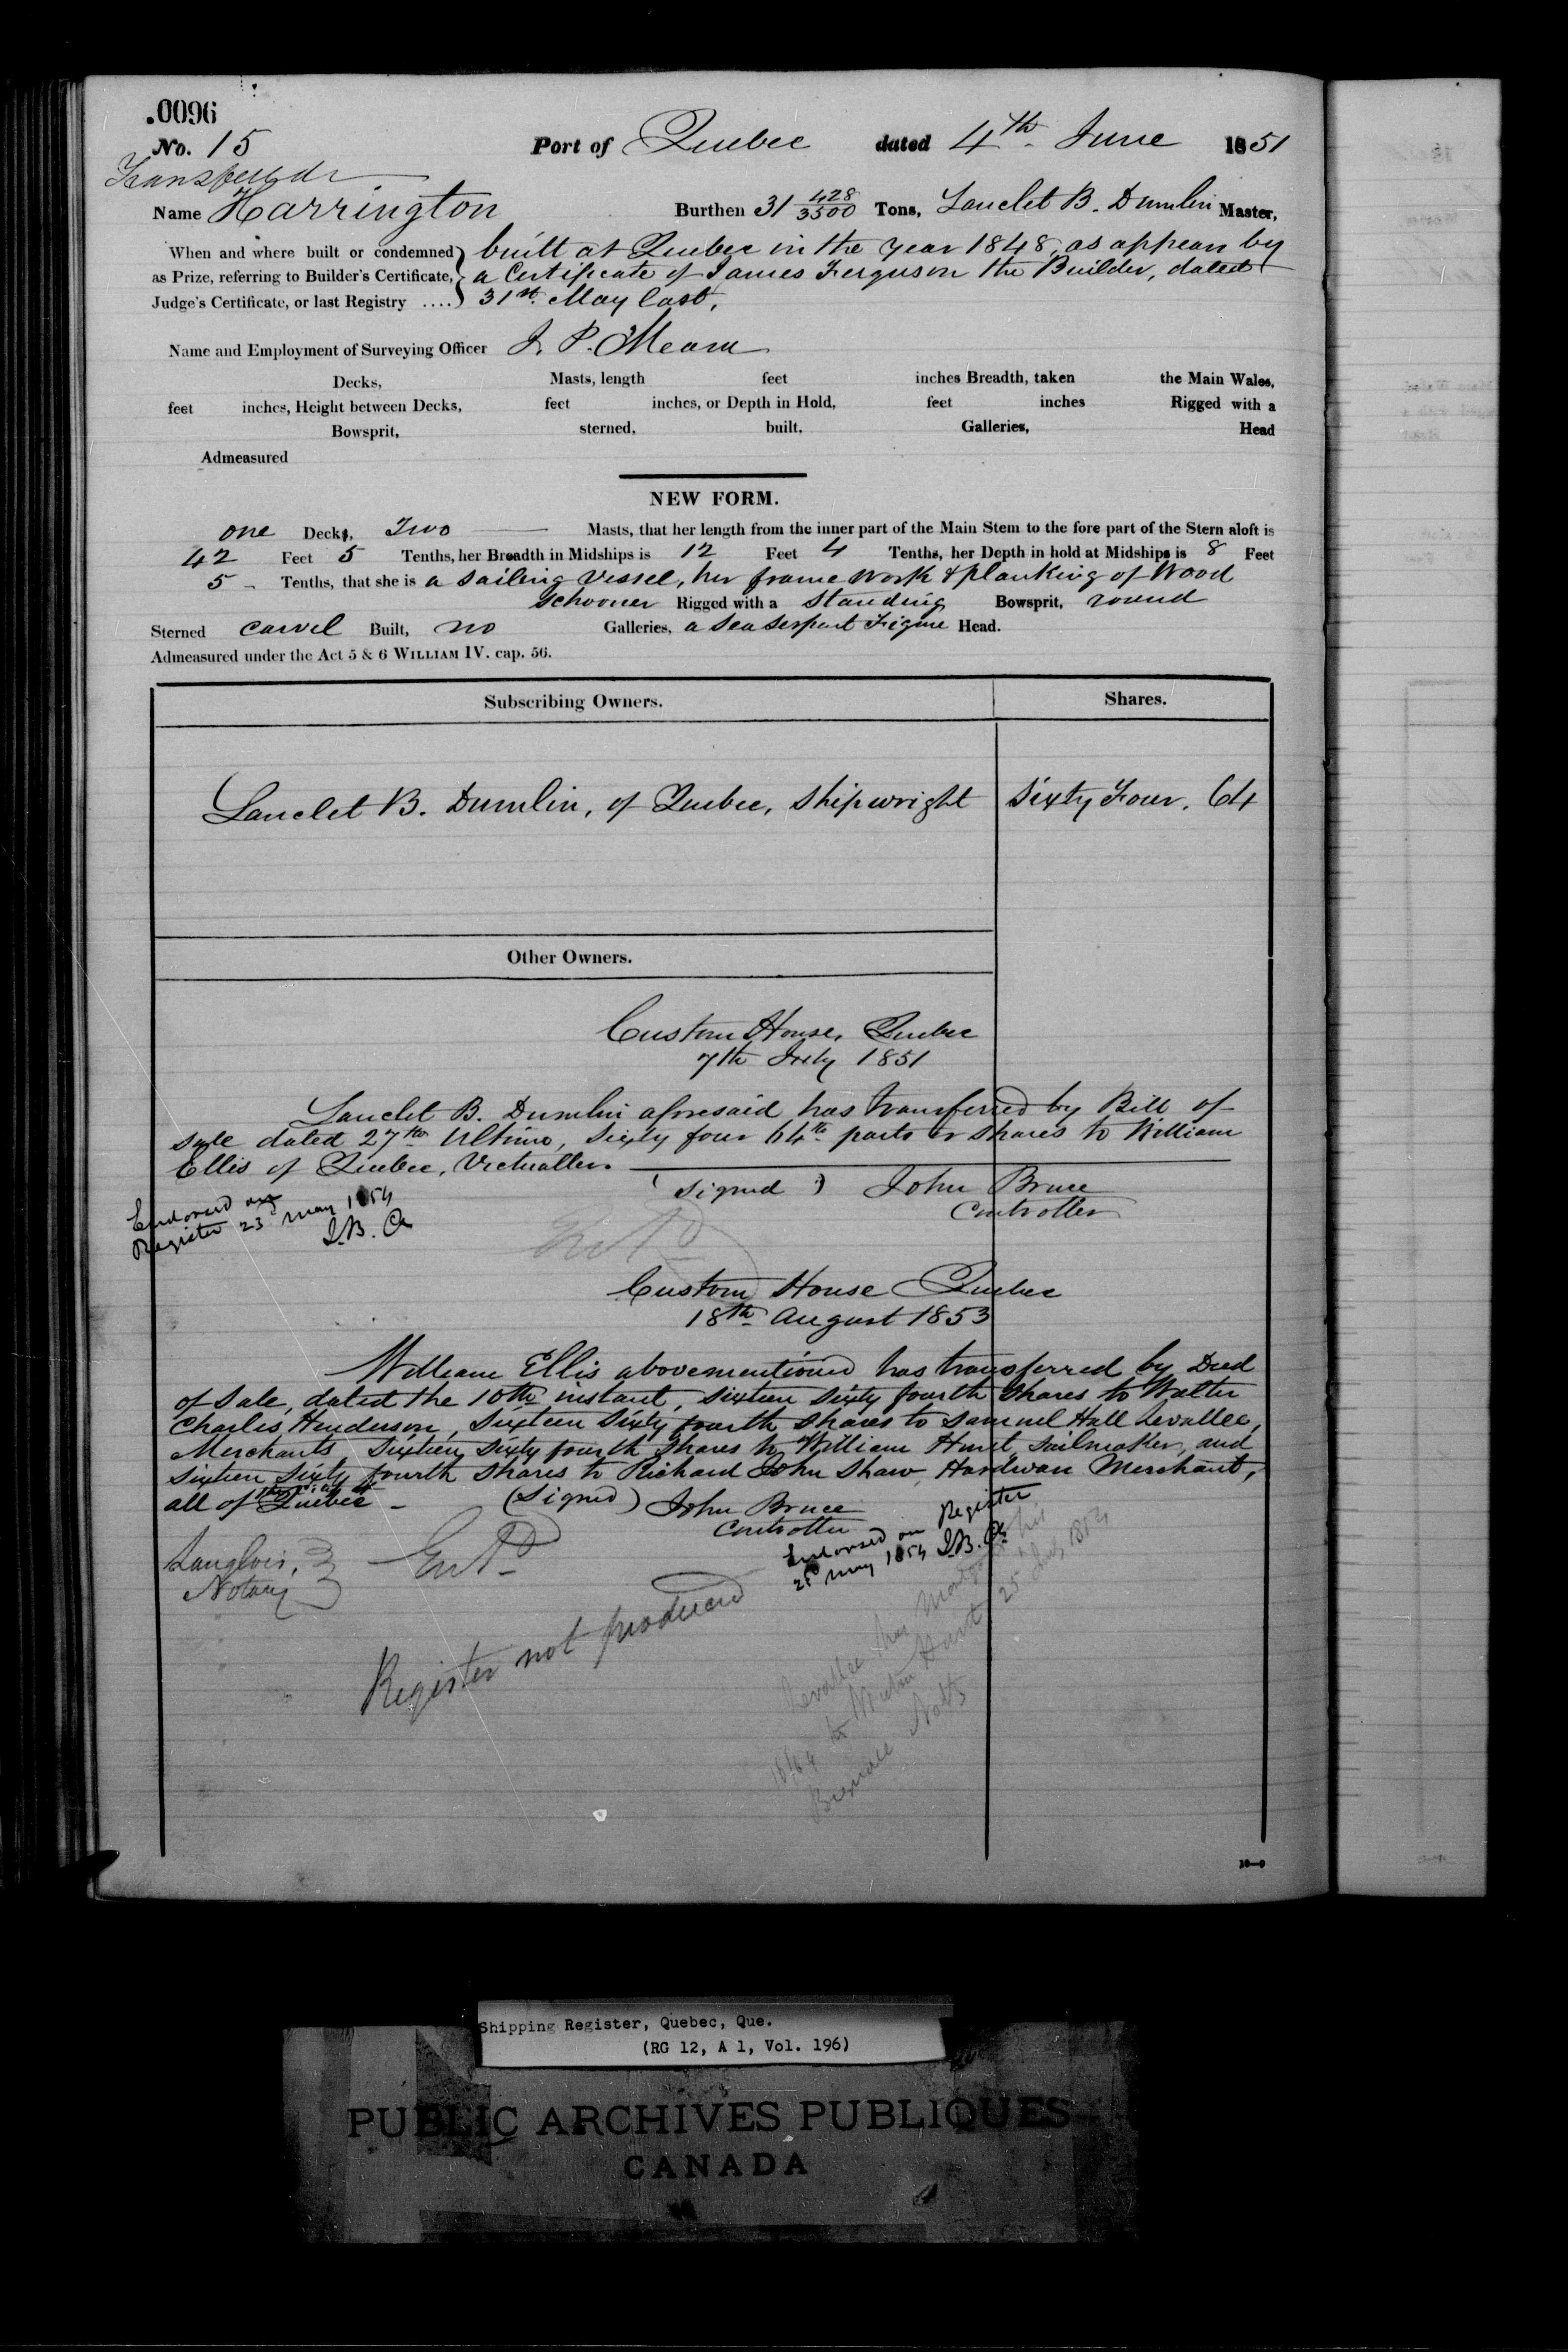 .0096
No. 15 Port of Quebec dated 4th June 1851
Transferred
Name Harrington Burthen 31 428/3500 Tons, Lanclet B. Dumlin Master,
When and where built or condemned built at Quebec in the year 1848, as appears by
as Prize, referring to Builder's Certificate, a Certificate of James Ferguson the Builder, dated
Judge's Certificate, or last Registry .... 31st May last,
Name and Employment of Surveying Officer J. P. Meara
Decks, Masts, length feet inches Breadth, taken the Main Wales,
feet inches, Height between Decks, feet inches, or Depth in Hold, feet inches Rigged with a
Bowsprit, sterned, built, Galleries, Head
Admeasured
NEW FORM.
one Decks, Two Masts, that her length from the inner part of the Main Stem to the fore part of the Stern aloft is
42 Feet 5 Tenths, her Breadth in Midships is 12 Feet 4 Tenths, her Depth in hold at Midships is 8 Feet
5 - Tenths, that she is a sailing vessel, her frame work & planking of Wood
schooner Rigged with a standing Bowsprit, round
Sterned carvel Built, no Galleries, a Sea Serpent Figure Head.
Admeasured under the Act 5 & 6 WILLIAM IV. cap. 56.
Subscribing Owners. Shares.
Lanclet B. Dumlin, of Quebec, Shipwright Sixty Four. 64
Other Owners.
Custom House, Quebec
7th July 1851
Lanclet B. Dumlin aforesaid has transferred by Bill of
sale dated 27th Ultimo, sixty four 64th parts or shares to William
Ellis of Quebec, Victualler.
(signed) John Bruce
Controller
Endorsed on
Register 23d May 1854
Custom House Quebec
18th August 1853
William Ellis abovementioned has transferred by Deed
of Sale, dated the 10th instant, sixteen sixty fourth shares to Walter
Charles Henderson, sixteen sixty fourth shares to Samuel Hall Levallee,
Merchants sixteen sixty fourth shares to William Hunt, sailmaker, and
sixteen sixty fourth shares to Richard John Shaw, Hardware Merchant,
all of Quebec -
(Signed) John Bruce
Controller
Endorsed on Register
May 1854
Langlois,
Notary
Register not produced
Levallee has
to Hunt 25
Shipping Register, Quebec, Que.
(RG 12, A 1, Vol. 196)
PUBLIC ARCHIVES PUBLIQUES
CANADA